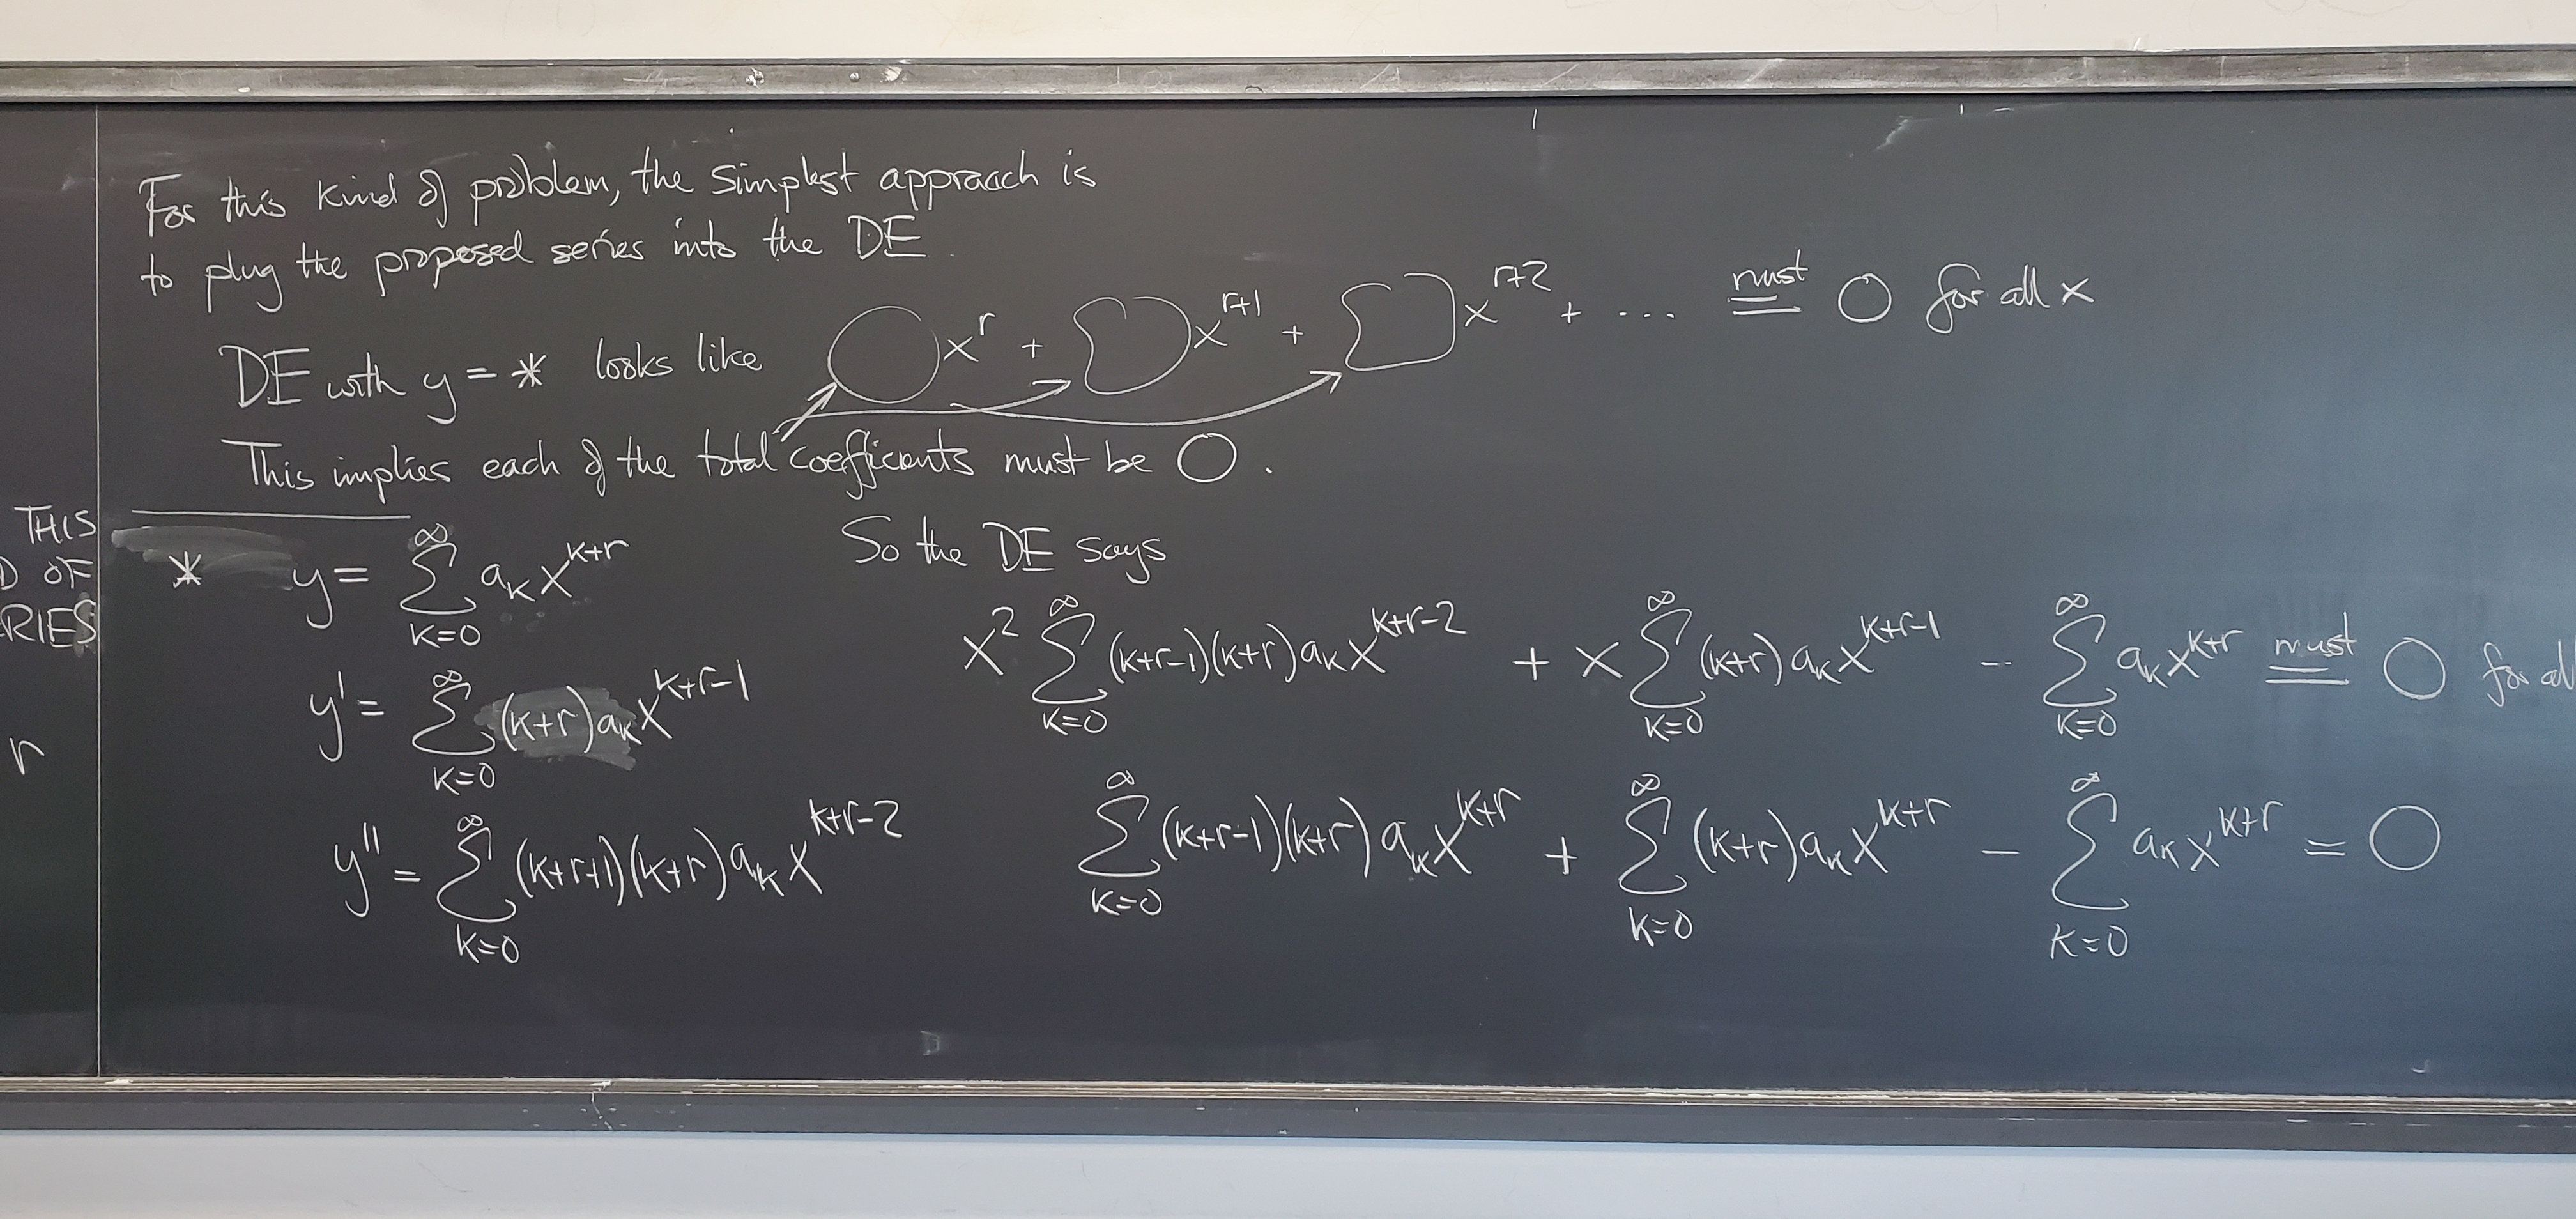 For this kind of problem, the simplest approach is
to plug the proposed series into the DE.
DE with y = * looks like ◯ x^r + ◯ x^{r+1} + ◯ x^{r+2} + ... must = 0 for all x
This implies each of the total coefficients must be 0.
THIS
D OF
RIES
r
* y = ∑_{k=0}^{∞} a_k x^{k+r}
y' = ∑_{k=0}^{∞} (k+r) a_k x^{k+r-1}
y'' = ∑_{k=0}^{∞} (k+r+1)(k+r) a_k x^{k+r-2}
So the DE says
x^2 ∑_{k=0}^{∞} (k+r-1)(k+r) a_k x^{k+r-2} + x ∑_{k=0}^{∞} (k+r) a_k x^{k+r-1} - ∑_{k=0}^{∞} a_k x^{k+r} must = 0 for all
∑_{k=0}^{∞} (k+r-1)(k+r) a_k x^{k+r} + ∑_{k=0}^{∞} (k+r) a_k x^{k+r} - ∑_{k=0}^{∞} a_k x^{k+r} = 0